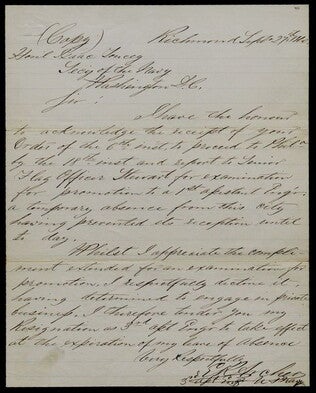 (Copy) Richmond Sept 27th
Honl Isaac Toucey
Secy of the Navy
Washington D.C.
Sir!
I have the honour
to acknowledge the receipt of your
Order of the 6th inst to proceed to Phila
by the 18th inst and report to Senior
Flag Officer Stewart for examination
for promotion to a 1st assistant Engr.
a temporary absence from this city
having prevented its reception until
to day.
Whilst I appreciate the compli-
ment extended for an examination for
promotion, I respectfully decline it,
having determined to engage in private
business, I therefore tender you my
Resignation as 3rd Asst Engr to take effect
at the expiration of my leave of Absence
Very Respectfully
3rd Asst Engr U S Navy